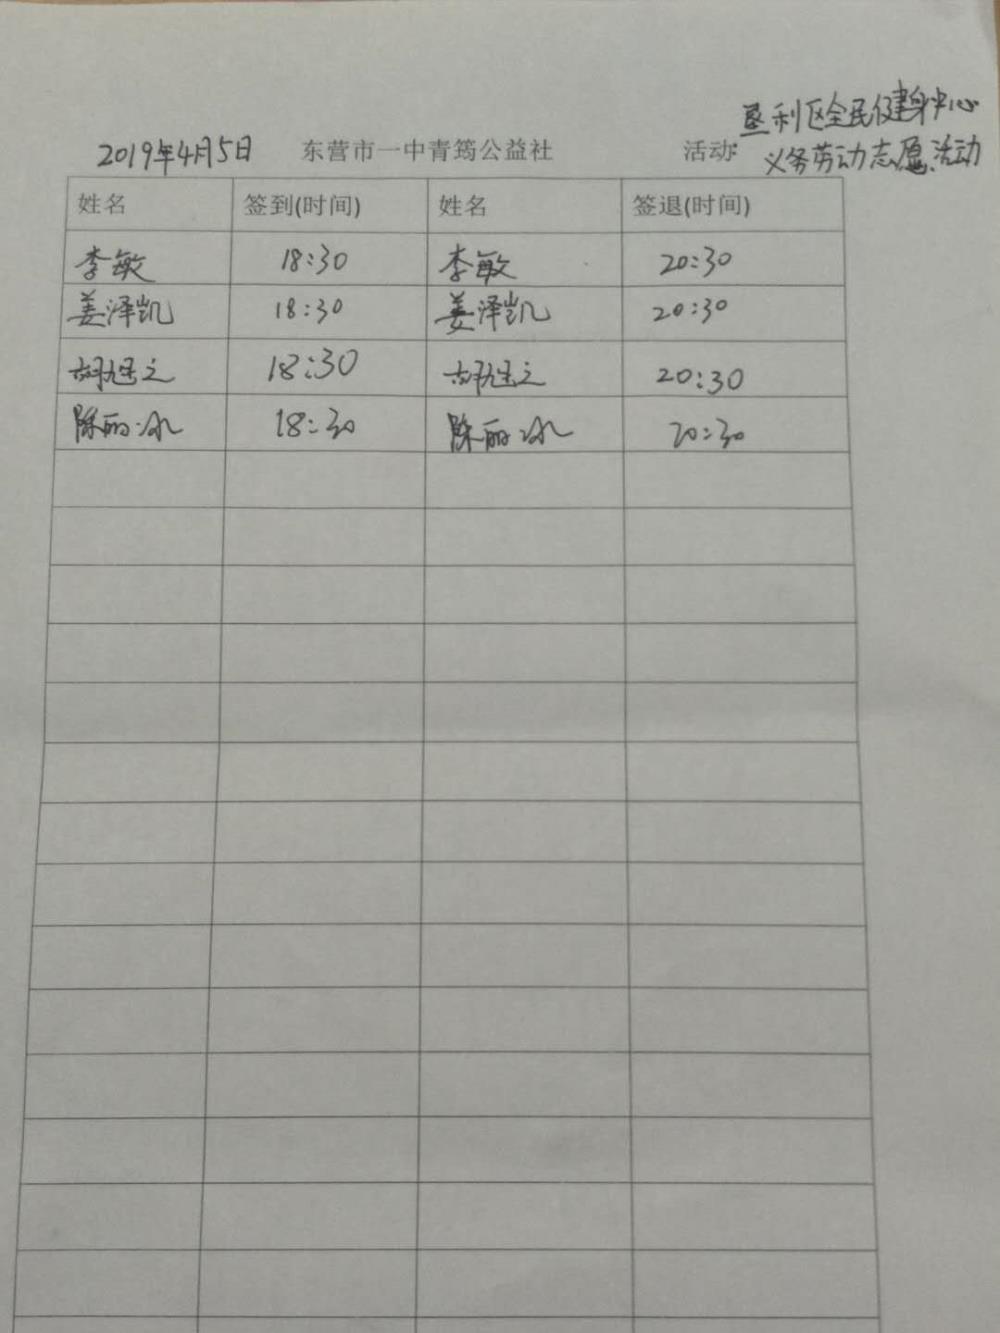 垦利区全民健身中心
2019年4月5日 东营市一中青筠公益社 活动: 义务劳动志愿活动
姓名 签到(时间) 姓名 签退(时间)
李敏 18:30 李敏 20:30
姜泽凯 18:30 姜泽凯 20:30
18:30 20:30
陈丽冰 18:30 陈丽冰 20:30